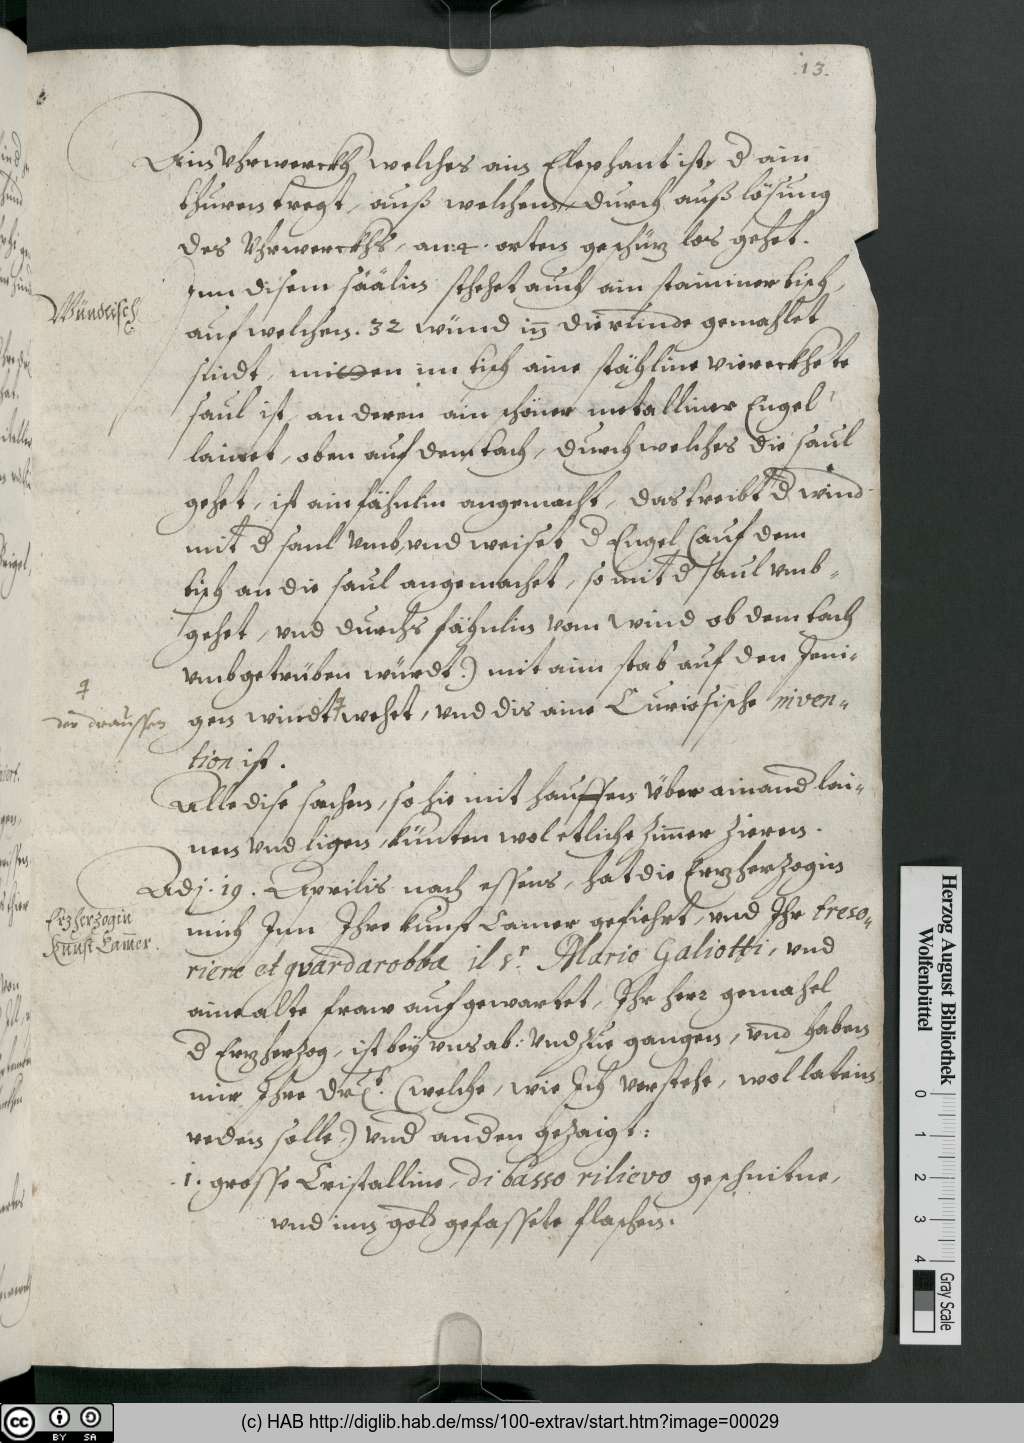 .13.
Ain Uhrwerckh welches ain Elephant ist, d ain
thuren tregt, auß welchem, durch außlösung
des Uhrwerckhs, an .4. orten geschüz los gehet.
Inn disem säälin stehet auch ain staininer tisch,
Wündtisch
auf welchen .32 wünd in die ründe gemahlet
sindt, mitten im tisch aine stähline viereckhete
saul ist, an deren ain schöner metalliner Engel
lainet, oben auf dem tach, durch welches die saul
gehet, ist ain fähnlin angemacht, das treibt d wind
mit d saul umb, und weiset d Engel (auf dem
tisch an die saul angemachet, so mit d saul umb-
gehet, und durchs fähnlin vom wind ob dem tach
umbgetriben würdt.) mit aim stab auf den Jeni-
der draussen
gen windt wehet, und dis aine Curiosische inven-
tion ist.
Alle dise sachen, so hie mit hauffen über ainand lai-
nen und ligen, künten wol etliche Zimer zieren.
Adj. 19. Aprilis nach essens, hat die Erzherzogin
Erzherzogin
Kunst Camer.
mich Inn Ihre kunst Camer gefiehrt, und Ihr treso-
riere et guardarobba il Sr. Mario Galiotti, und
aine alte fraw aufgewartet, Ihr herr gemahel
d Erzherzog, ist bey uns ab: und zue gangen, und haben
mir Ihre Drt. (welche, wie Ich verstehe, wol latein
reden solle,) und anden gezaigt:
1. grosse Cristalline, di basso rilievo geschnitne,
und inn gold gefassete flaschen.
Herzog August Bibliothek
Wolfenbüttel
0 1 2 3 4
Gray Scale
cc BY SA
(c) HAB http://diglib.hab.de/mss/100-extrav/start.htm?image=00029